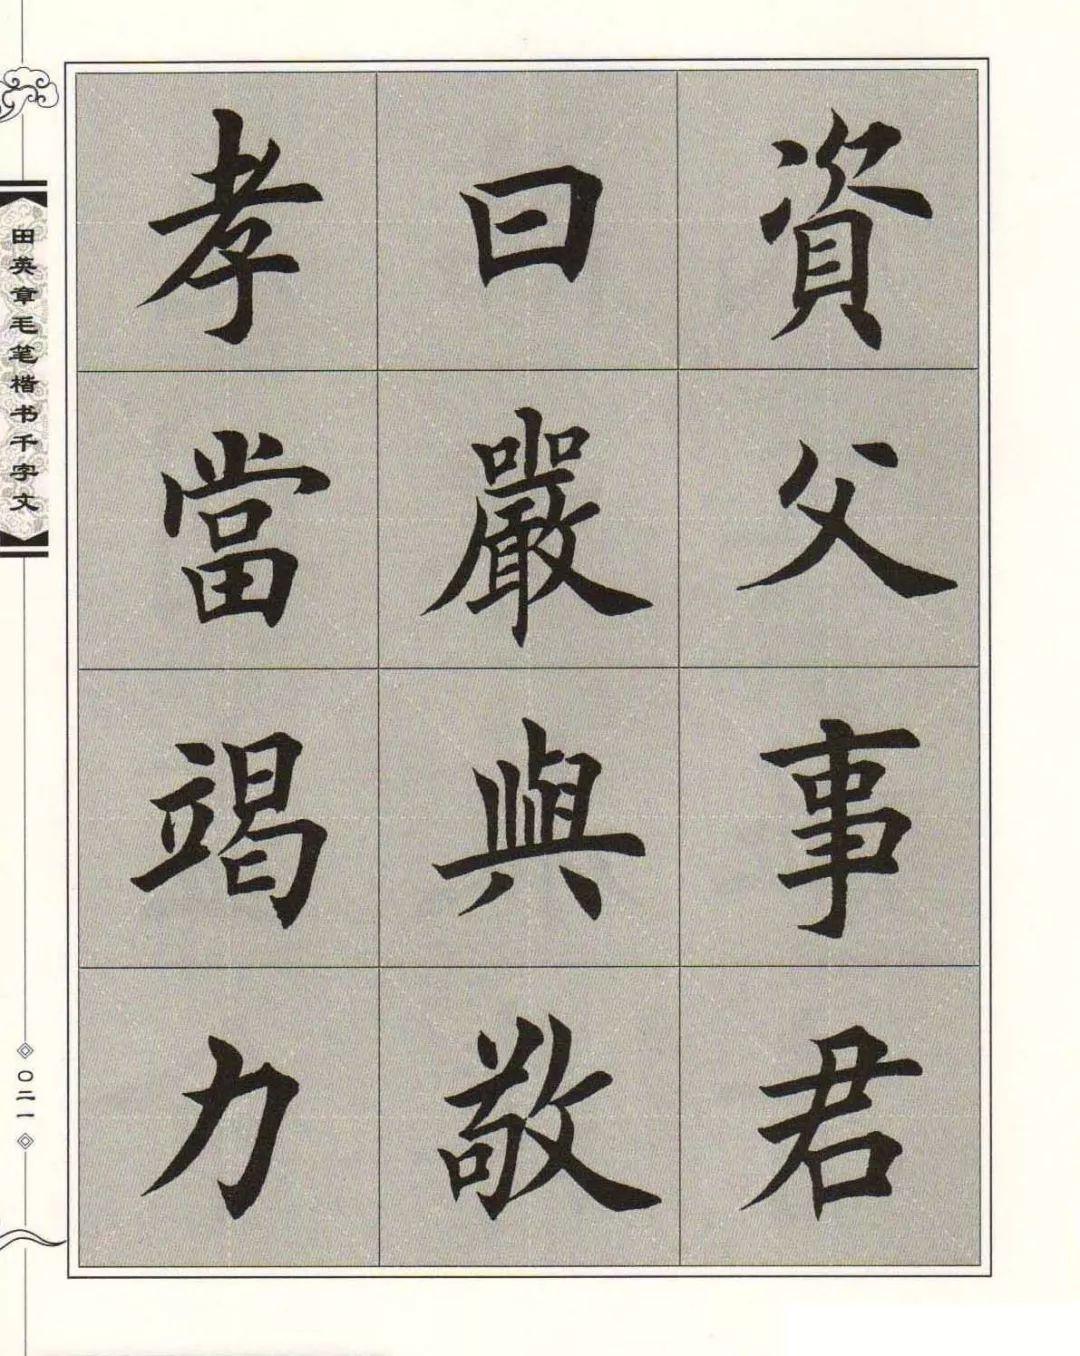 資父事君
曰嚴與敬
孝當竭力
田英章毛笔楷书千字文
〇二一